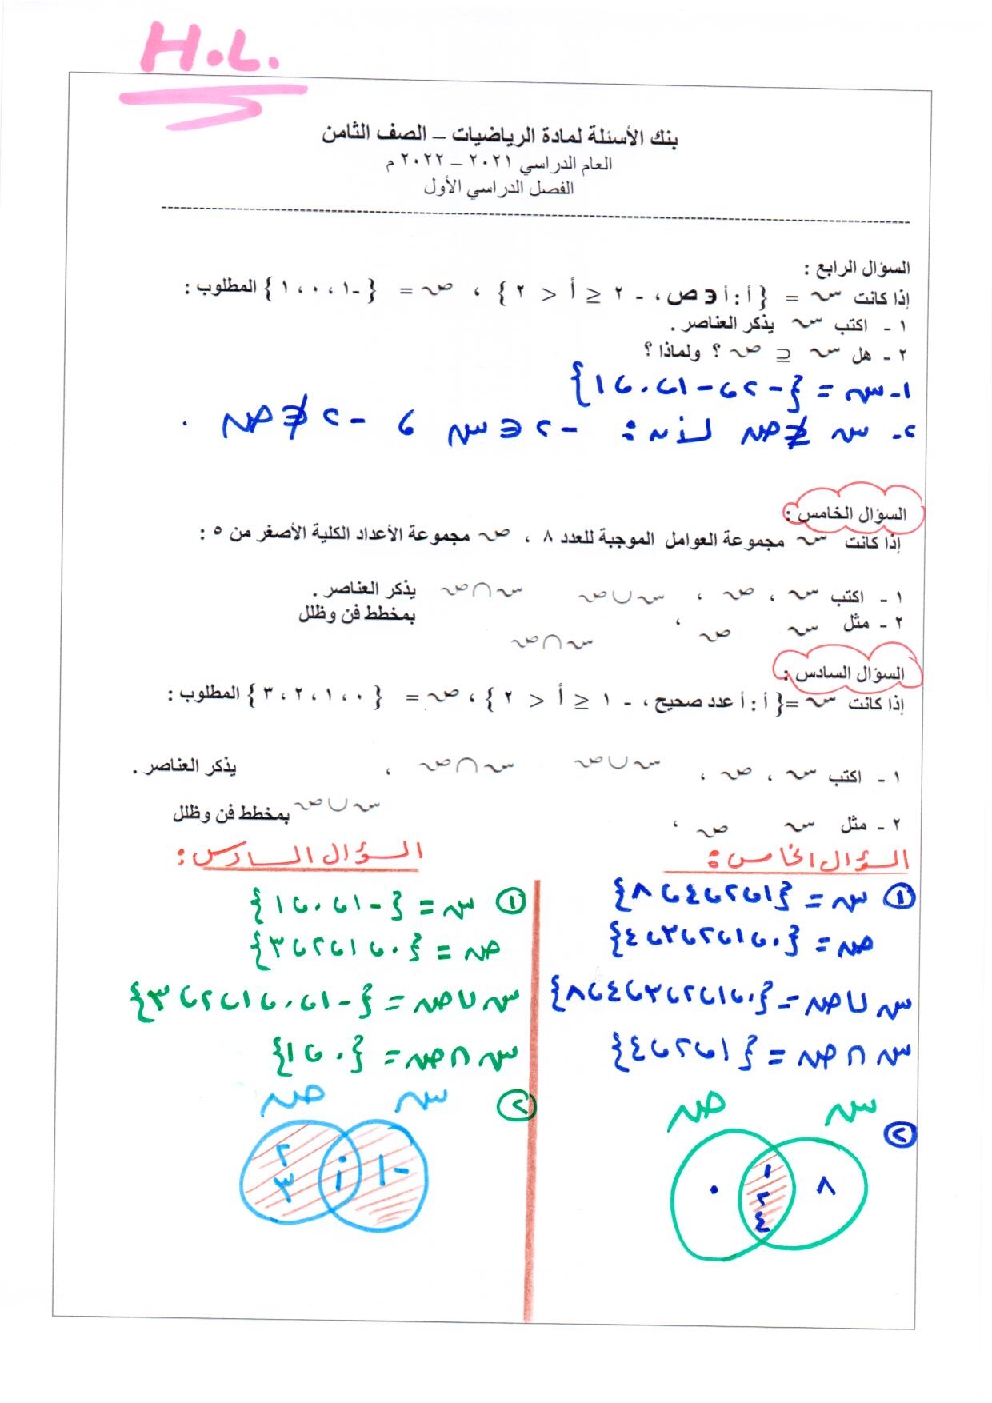 H.L.
بنك الأسئلة لمادة الرياضيات – الصف الثامن
العام الدراسي ٢٠٢١ – ٢٠٢٢ م
الفصل الدراسي الأول
السؤال الرابع :
إذا كانت سـ = { أ : أ ∈ ص ، - ٢ ≤ أ < ٢ } ، صـ = { -١ ، ٠ ، ١ } المطلوب :
١ - اكتب سـ بذكر العناصر .
٢ - هل سـ ⊆ صـ ؟ ولماذا ؟
١- سـ = {-٢ ، -١ ، ٠ ، ١}
٢- سـ ⊈ صـ لأن : -٢ ∈ سـ و -٢ ∉ صـ .
السؤال الخامس :
إذا كانت سـ مجموعة العوامل الموجبة للعدد ٨ ، صـ مجموعة الأعداد الكلية الأصغر من ٥ :
١ - اكتب سـ ، صـ ، سـ ∪ صـ سـ ∩ صـ بذكر العناصر .
٢ - مثل سـ صـ ، سـ ∩ صـ بمخطط فن وظلل
السؤال السادس :
إذا كانت سـ = { أ : أ عدد صحيح ، - ١ ≤ أ < ٢ } ، صـ = { ٠ ، ١ ، ٢ ، ٣ } المطلوب :
١ - اكتب سـ ، صـ ، سـ ∪ صـ سـ ∩ صـ ، بذكر العناصر .
٢ - مثل سـ صـ ، سـ ∪ صـ بمخطط فن وظلل
السؤال الخامس :
① سـ = {١ ، ٢ ، ٤ ، ٨}
صـ = {٠ ، ١ ، ٢ ، ٣ ، ٤}
سـ ∪ صـ = {٠ ، ١ ، ٢ ، ٣ ، ٤ ، ٨}
سـ ∩ صـ = {١ ، ٢ ، ٤}
②
سـ صـ
٨
١
٢
٤
٠
السؤال السادس :
① سـ = {-١ ، ٠ ، ١}
صـ = {٠ ، ١ ، ٢ ، ٣}
سـ ∪ صـ = {-١ ، ٠ ، ١ ، ٢ ، ٣}
سـ ∩ صـ = {٠ ، ١}
②
سـ صـ
-١
٠
١
٢
٣